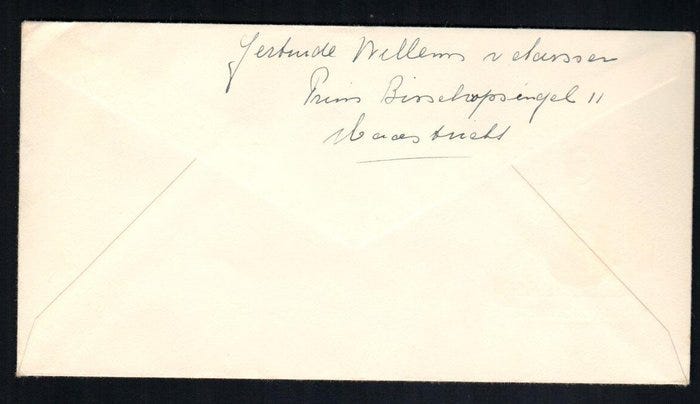 Gertrude Willems
Prins Bisschopsingel 11
Maastricht